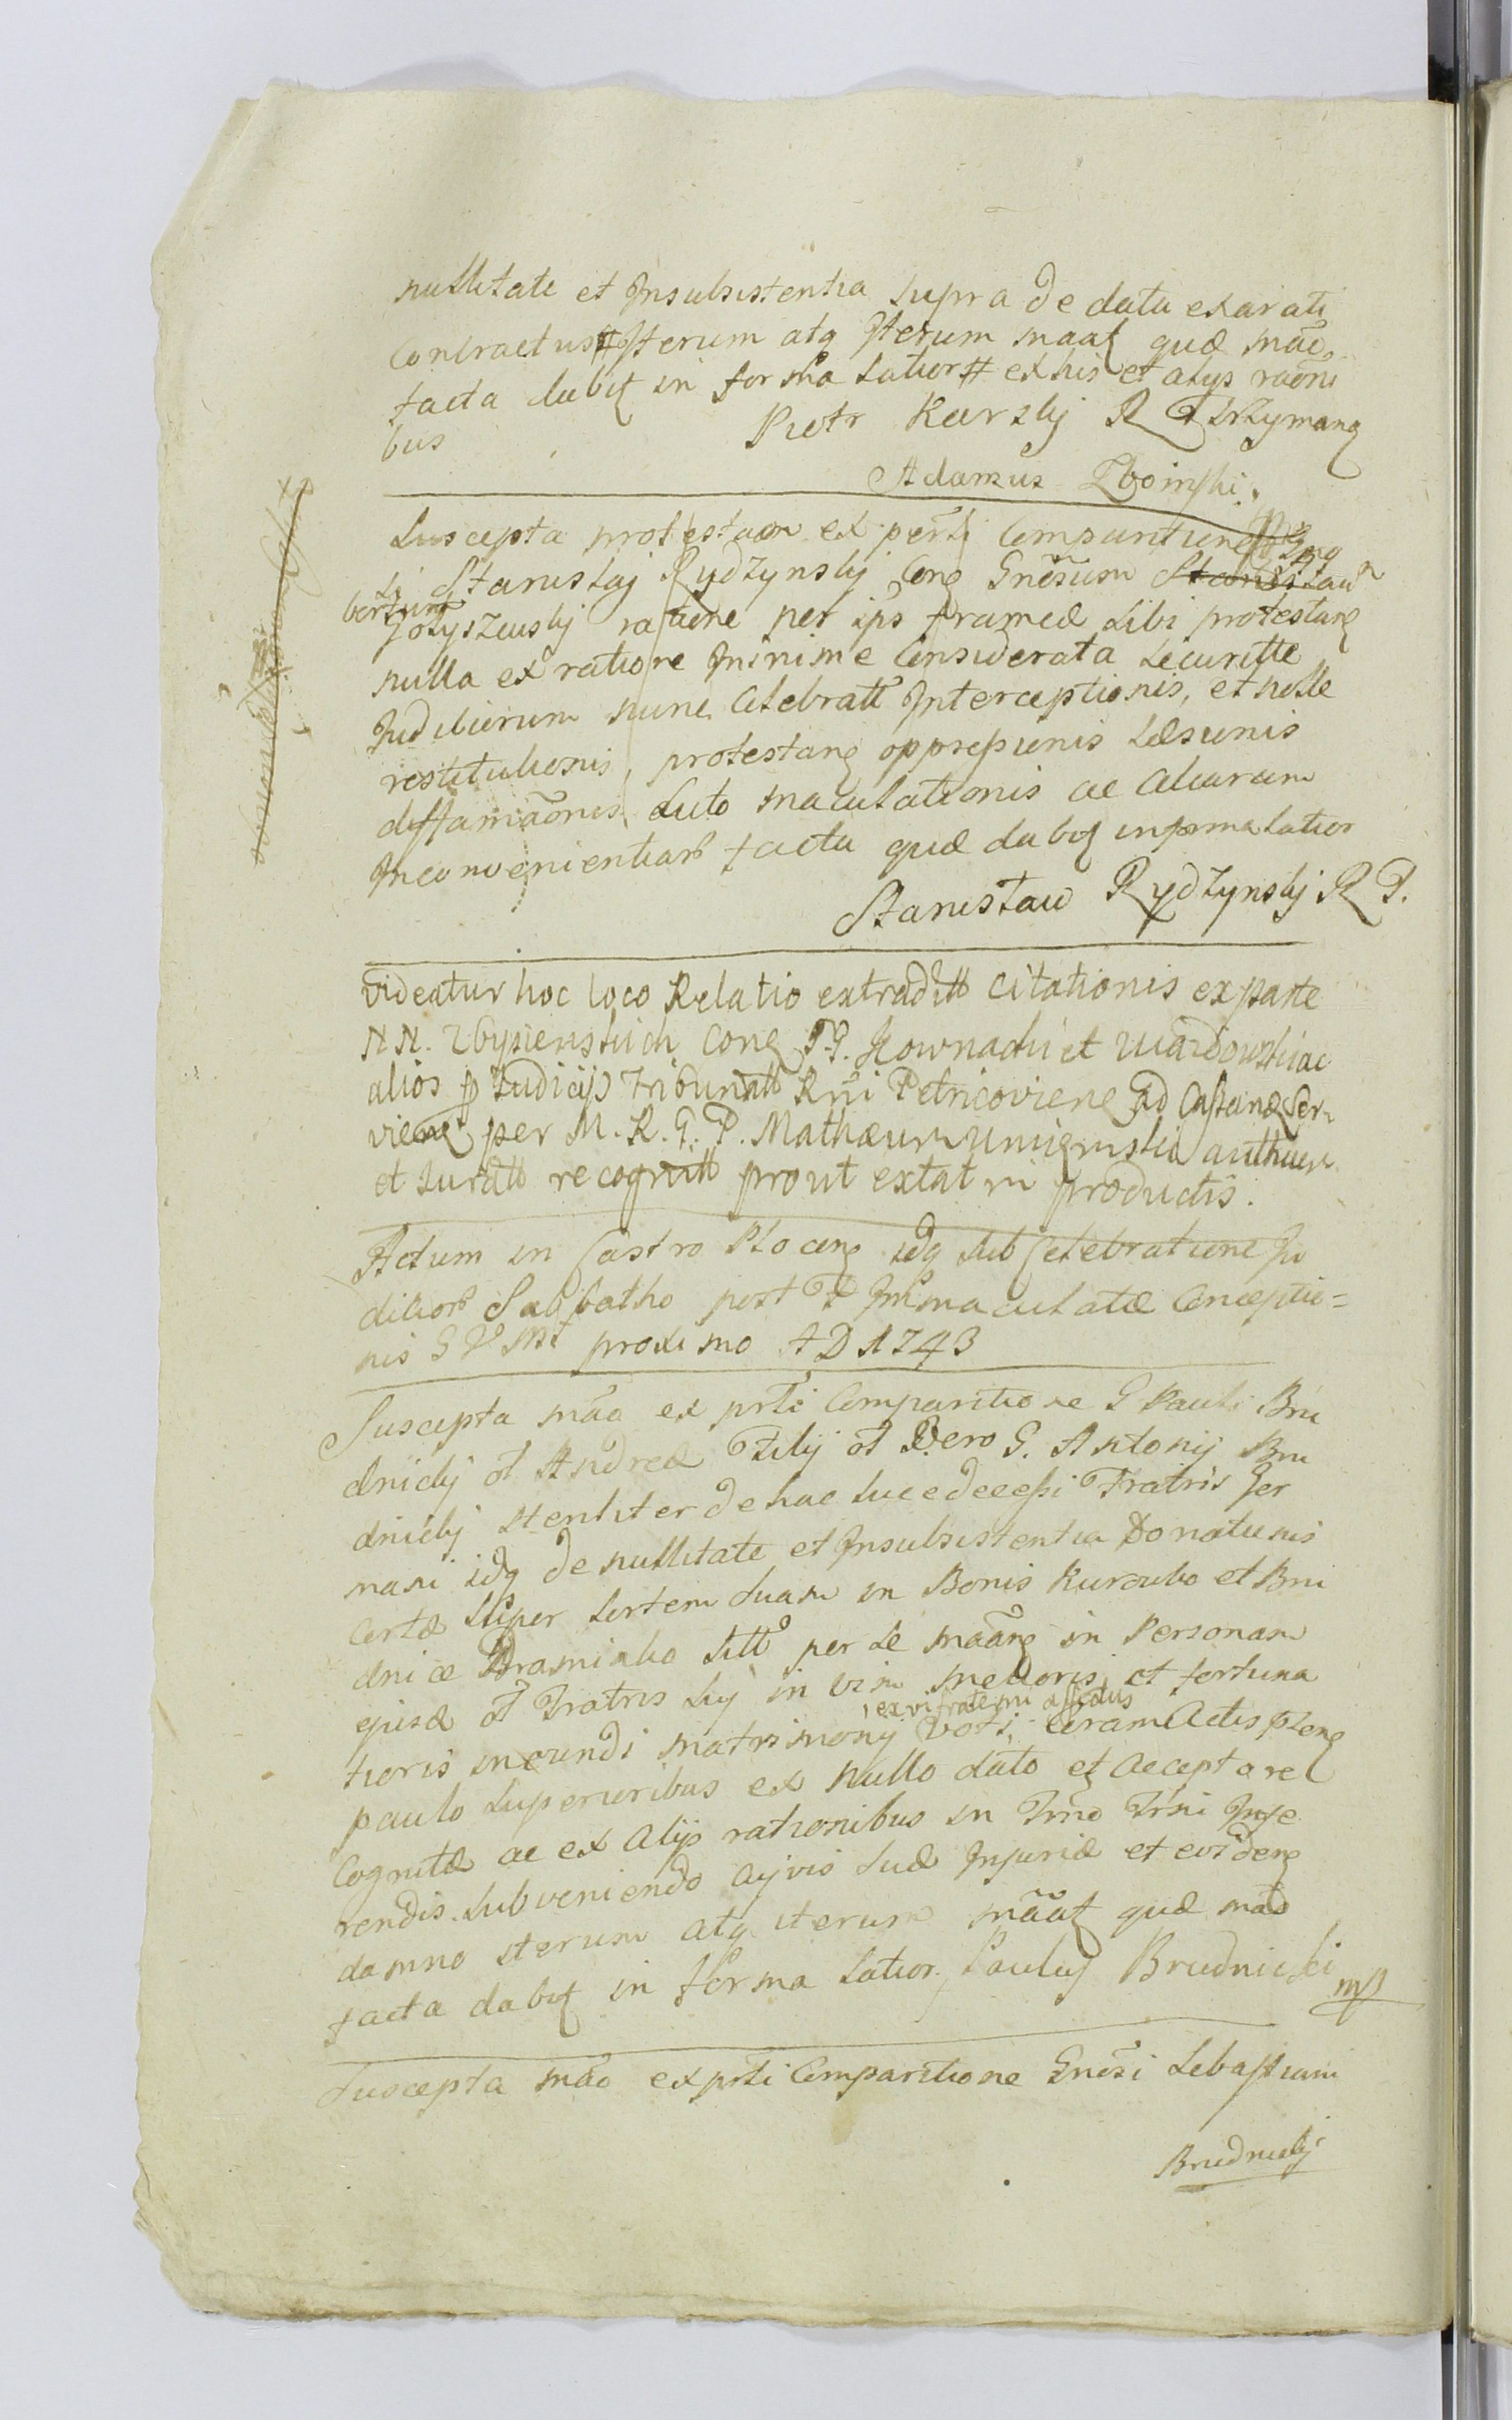 nullitate et Insubsistentia supra de data exarati
Contractus # Iterum atq Iterum maãt quæ mão
facta dabit in forma latiori # ex his et alys raõni
bus Piotr Karskj R Otrzymane
Adamus Zboinski.
Suscepta protestaõn ex perĩi Comparitione
Stanislaj Rydzynskj Cong Gnẽsum Stanislau
bertum Zołyszewskj ratione per ips framea sibi protestang
nulla ex ratione Minime Considerata securitte
Judiciorum nunc Celebratt Interceptionis, et nolle
restitutionis, protestang oppressionis Læsionis
diffamaõnis, Luto maculationis ac aliarum
Inconvenientiarũ facta quæ dabit in forma latior
Stanisław Rydzynskj R P.
Videatur hoc loco Relatio extraditt citationis ex parte
N N. Zbysienskich Cong G.G. Kownacki et Wiardowski ac
alios p Judicijs Tribunatt Rñi Petricoviene ad Castrinæ Ser
vieng per M. R. G. P. Mathæum Umięnski authum
et Juratt recognitt prout extat in productis.
Actum in Castro Ploceng idq sub Celebratione Ju
diciorũ Sabbatho post F Immaculatæ Conceptio=
nis G V Mæ proximo A D 1743
Suscepta mão ex prĩi Comparitione G Pauli Bru
dnickj ol Andreæ Filij ol Vero G. Antonij Bru
dnickj steriliter de hac luce decessi Fratris Ger
mani idq de nullitate et Insubsistentia Donationis
Certæ super sortem suam in Bonis Kurowo et Bru
dnice Bramiako sitt per se maãng in Personam
ejusd ol Fratris sui in vim melioris et fortuna
, ex vi fraterni affectus
tioris ineundi matrimonij voti, coram Actis pleng
paulo superioribus ex nullo dato et accepta re
Cognitæ ac ex alijs rationibus in Trno Trni Inse
rendis. subveniendo ajvis suæ Injuriæ et evideng
damno iterum atq iterum mãat quæ mão
facta dabit in forma latior. Paulus Brudnicki mp
Suscepta mão ex prĩi Comparitione Gnẽsi Sebastiani
Brudnickj